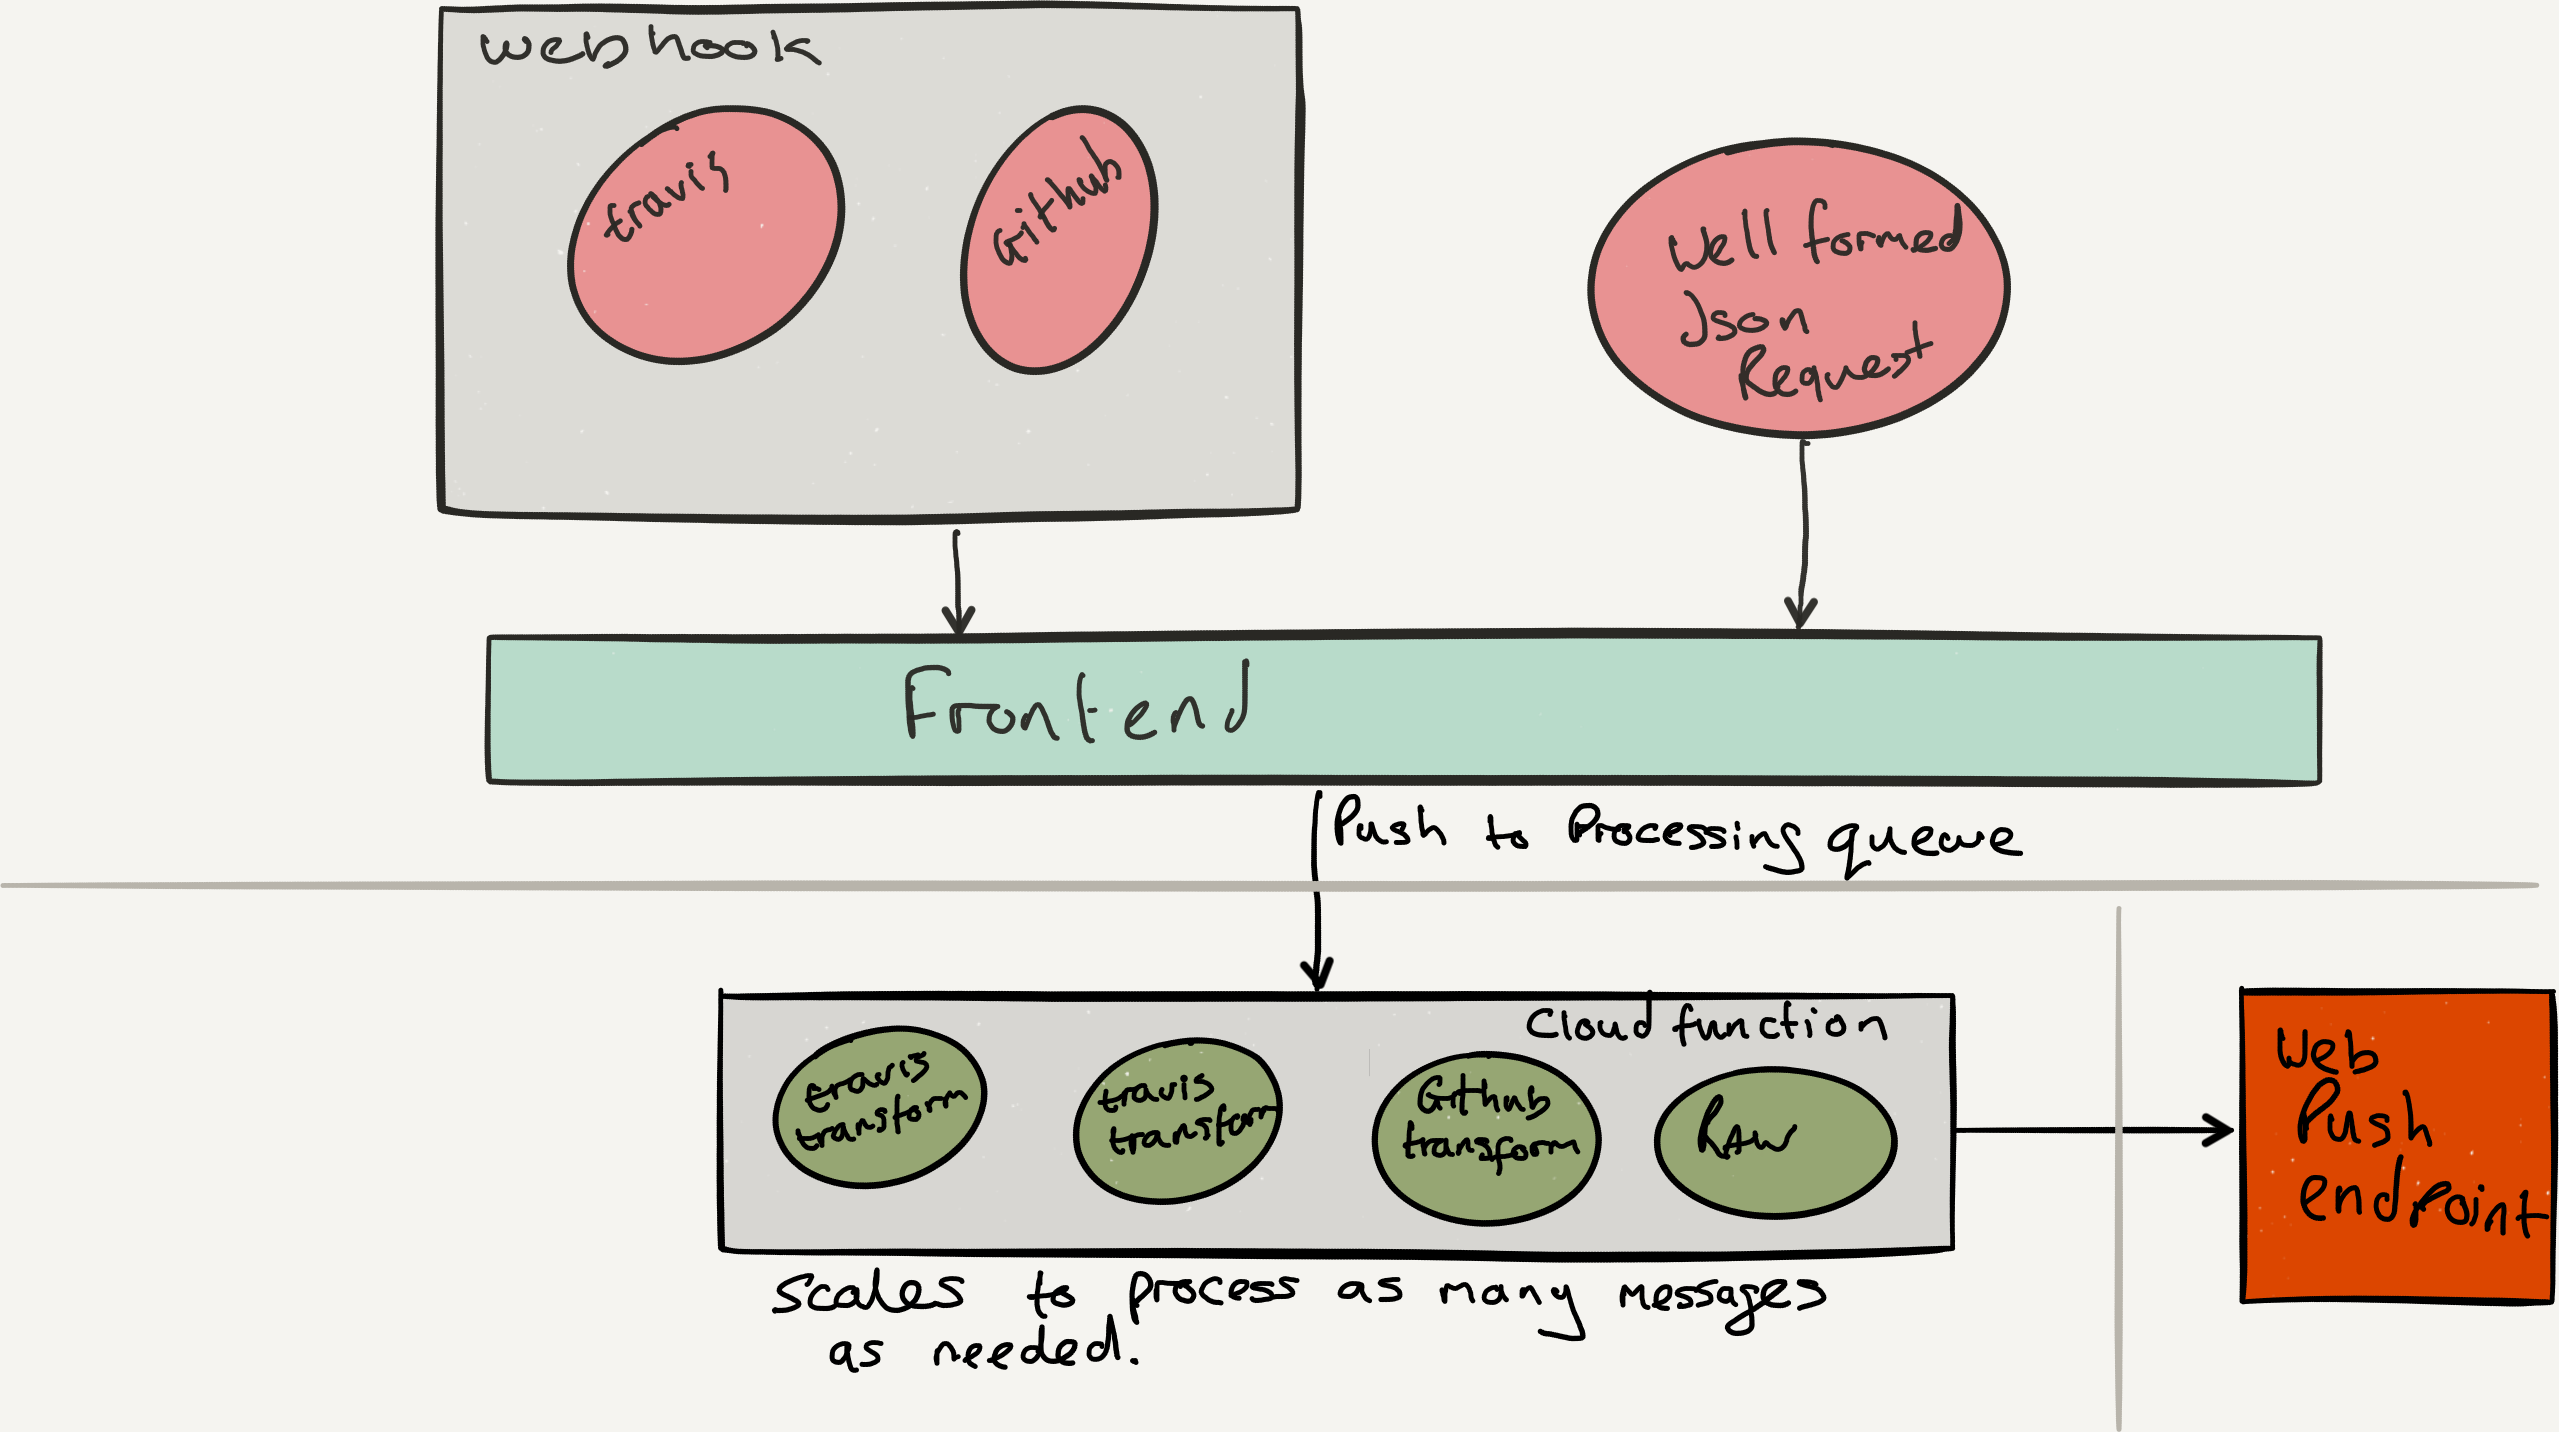 webhook
travis
Github
Well formed
Json
Request
Frontend
Push to Processing queue
Cloud function
travis
transform
travis
transform
Github
transform
RAW
Web
Push
endpoint
Scales to process as many messages
as needed.